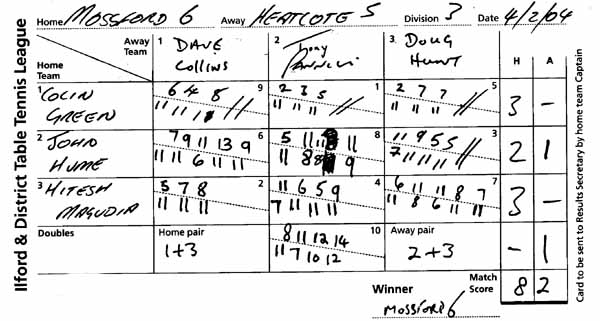 Ilford & District Table Tennis League
Home MOSSFORD 6 Away HEATCOTE 5 Division 3 Date 4/2/04
Away Team 1 DAVE COLLINS 2 Tony 3 DOUG HUNT H A
Home Team
1 COLIN GREEN 6 4 8 9 2 3 5 1 2 7 7 5 3 -
11 11 11 11 11 11 11 11 11
2 JOHN HUME 7 9 11 13 9 6 5 11 11 11 8 11 9 5 5 3 2 1
11 11 6 11 11 11 8 9 7 11 11 11
3 HITESH MAGUDIA 5 7 8 2 11 6 5 9 4 6 11 11 8 7 7 3 -
11 11 11 7 11 11 11 11 8 6 11 11
Doubles Home pair 1+3 8 11 12 14 10 Away pair 2+3 - 1
11 7 10 12
Winner MOSSFORD 6 Match Score 8 2
Card to be sent to Results Secretary by home team Captain